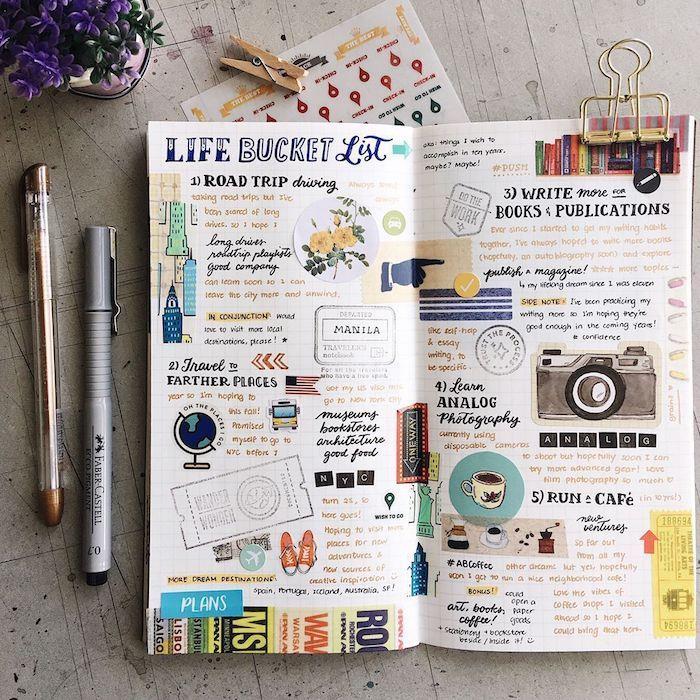 LIFE BUCKET List
1) ROAD TRIP driving
Always loved
taking road trips but I've always
been scared of long
drives, so I hope I
long drives
roadtrip playlists
good company
can learn soon so I can
leave the city more and unwind.
IN CONJUNCTION: would
love to visit more local
destinations, please! *
DEPARTED
MANILA
TRAVELER'S
notebook
For all the travelers
who have a free spirit
2) Travel to
FARTHER PLACES
got my US visa this
year so I'm hoping to
go to New York City
this fall!
Promised
myself to go to
NYC before I
OH THE PLACES I'LL GO
museums
bookstores
architecture
good food
NYC
turn 25, so
here goes!
WISH TO GO
WANDER
WOMEN
Hoping to visit more
places for new
adventures &
new sources of
creative inspiration
MORE DREAM DESTINATIONS:
Spain, Portugal, Iceland, Australia, SF!
PLANS
LISBO
ISTANBUL
WARSA
ROCHESTER
PAN AM
aka: things I wish to
accomplish in ten years,
maybe? Maybe!
#PUSH
DO THE
WORK
3) WRITE more FOR
BOOKS & PUBLICATIONS
Ever since I started to get my writing habits
together, I've always hoped to write more books
(hopefully, an autobiography soon) and explore
publish a magazine!
more topics
↳ my lifelong dream since I was eleven
like self-help
& essay
writing, to
be specific.
TRUST THE PROCESS
SIDE NOTE: I've been practicing
my writing more so I'm hoping they're
good enough in the coming years!
# confidence
4) Learn
ANALOG
Photography
currently using
disposable cameras
ANALOG
to shoot but hopefully soon I can
try more advanced gear! Love
film photography so much
grainy
ONE WAY
5) RUN A CAFÉ (in 10 yrs!)
new
ventures
so far out
from all my
#ABCoffee
other dreams but yes, hopefully
soon I get to run a nice neighborhood café!
BONUS!
could
open a
paper
goods
art, books,
coffee!
+ stationery + bookstore
beside / inside it!
Love the vibes of
coffee shops I visited
abroad so I hope I
could bring that here.
188661
198694
THE BEST
CHECK-IN
WISH TO GO
FABER-CASTELL
0.7